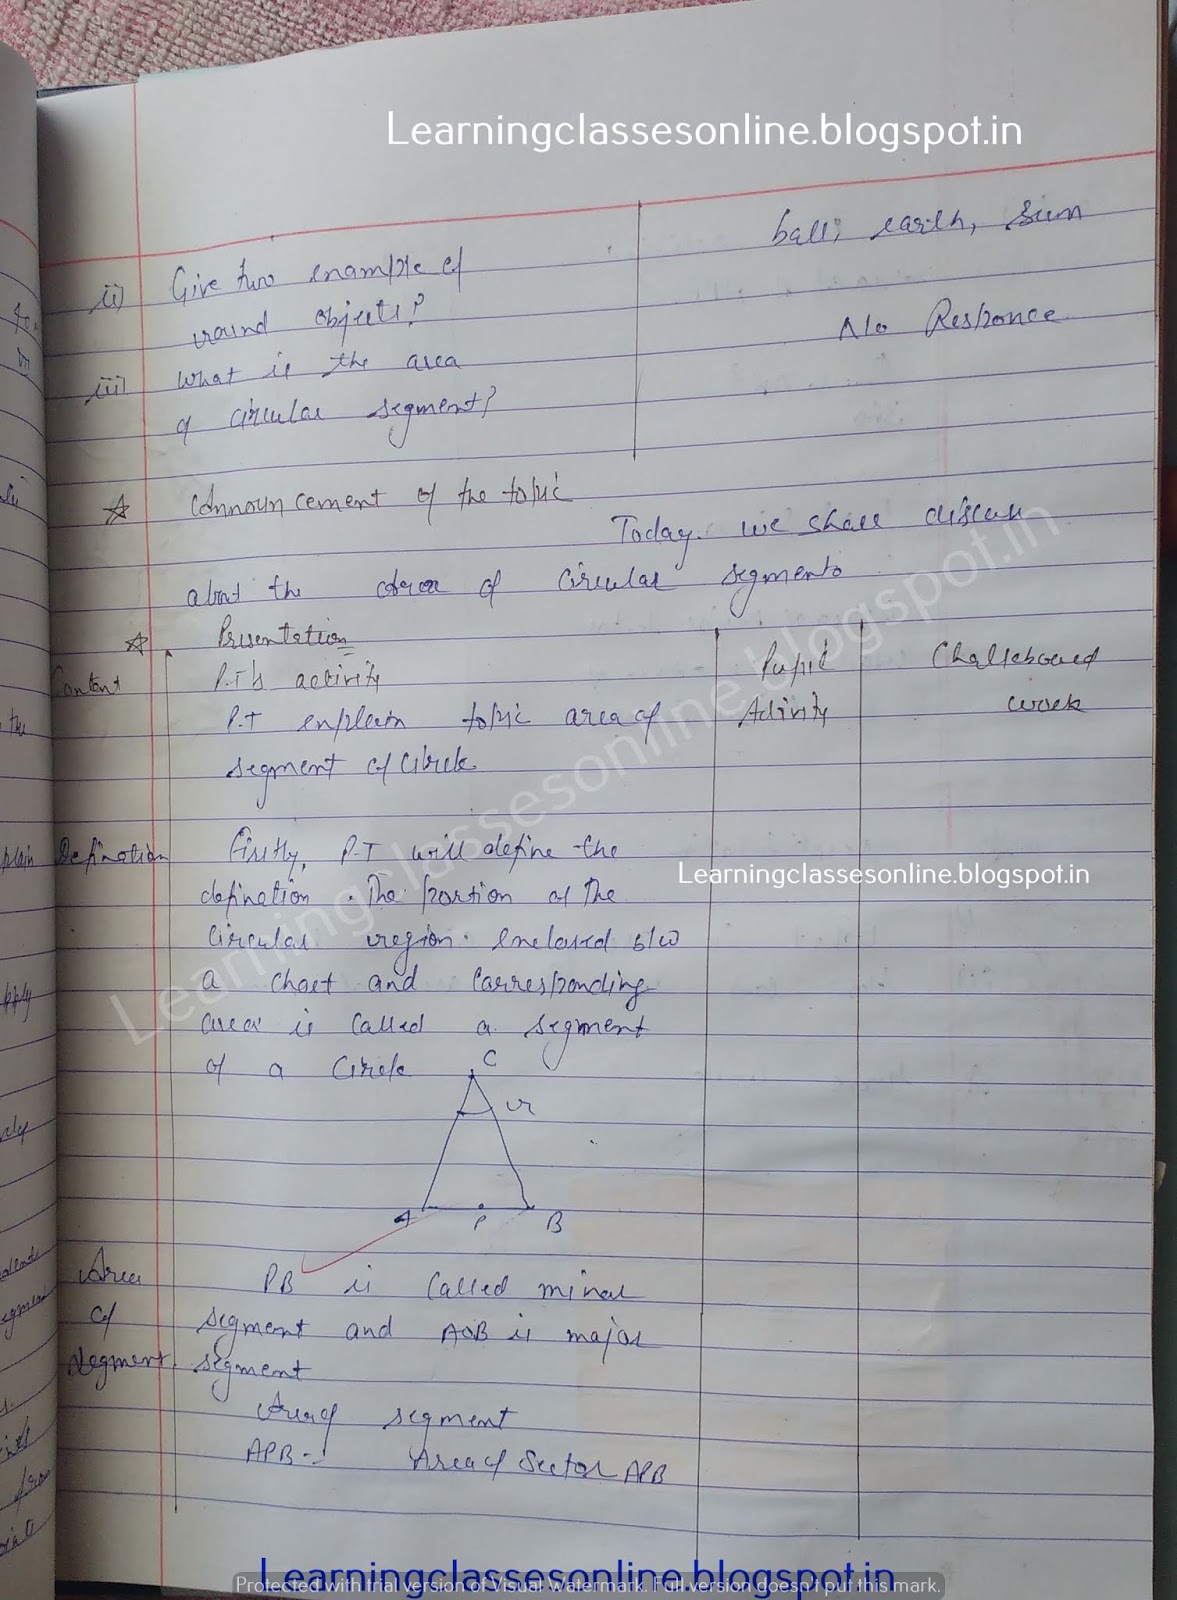 Learningclassesonline.blogspot.in
ball, earth, sun
ii) Give two enample of
round objects?
No Responce
iii) what is the area
of circular segment?
☆ Announcement of the topic
Today. we shall discuss
about the area of circular segments
☆ Presentation
Content P.T's activity Pupil Chalkboard
P.T enplain topic area of Activity work
segment of circle
Defination Firstly, P.T will define the
Learningclassesonline.blogspot.in
defination. The portion of the
circular region. enclosed b/w
a chart and corresponding
area is called a segment
of a circle
C
r
A P B
Area PB is called minor
of segment and AOB is major
segment segment
Area of segment
APB Area of Sector APB
Learningclassesonline.blogspot.in
Learningclassesonline.blogspot.in
Protected with trial version of Visual Watermark. Full version doesn't put this mark.